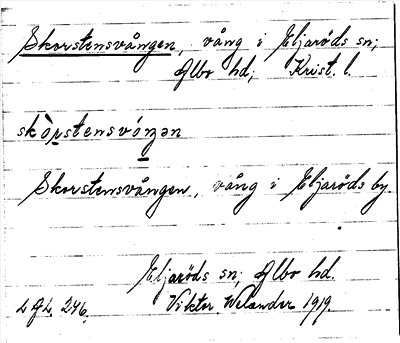 Skorstensvången, vång i Eljaröds sn;
Albo hd; Krist. l.
skòrstensvóŋən
Skorstensvången, vång i Eljaröds by.
Eljaröds sn; Albo hd.
Viktor Welander 1919.